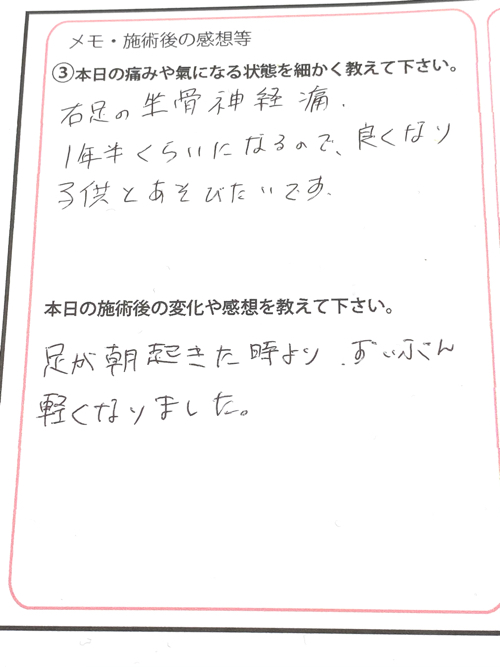 メモ・施術後の感想等
③本日の痛みや氣になる状態を細かく教えて下さい。
右足の坐骨神経痛.
1年半くらいになるので、良くなり
子供とあそびたいです.
本日の施術後の変化や感想を教えて下さい。
足が朝起きた時より、ずいぶん
軽くなりました。